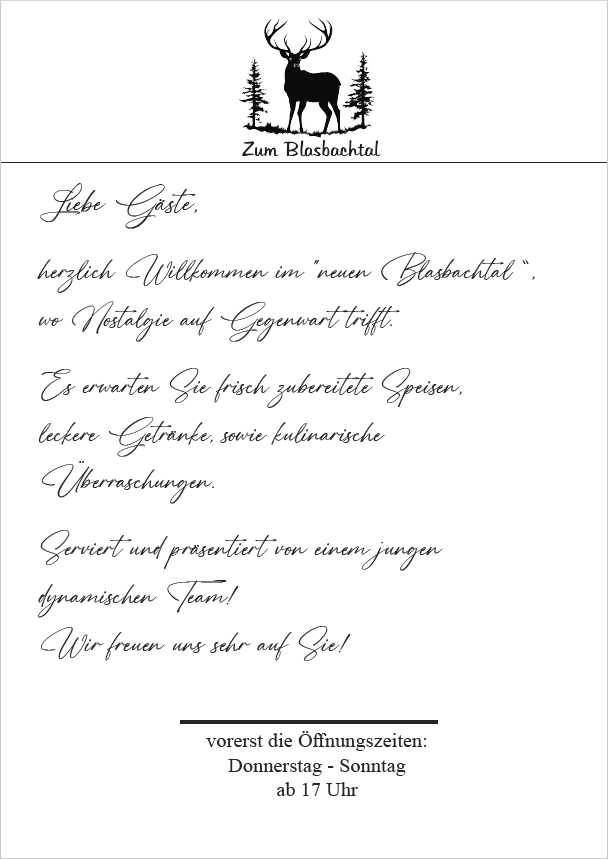 Zum Blasbachtal
Liebe Gäste,
herzlich Willkommen im "neuen Blasbachtal",
wo Nostalgie auf Gegenwart trifft.
Es erwarten Sie frisch zubereitete Speisen,
leckere Getränke, sowie kulinarische
Überraschungen.
Serviert und präsentiert von einem jungen
dynamischen Team!
Wir freuen uns sehr auf Sie!
vorerst die Öffnungszeiten:
Donnerstag - Sonntag
ab 17 Uhr